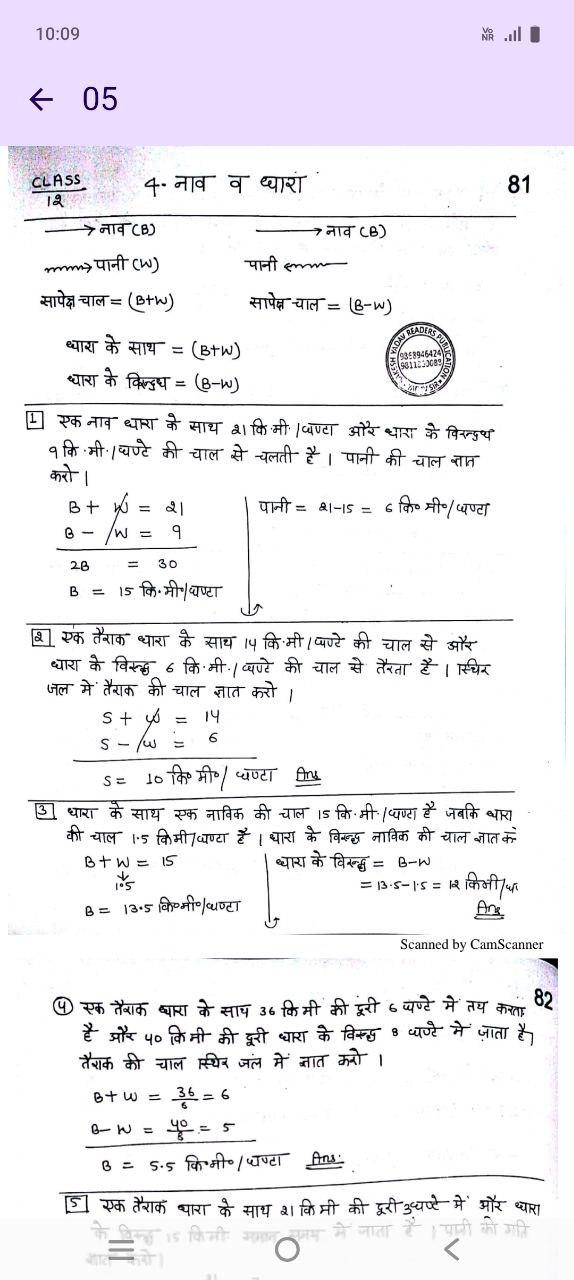 10:09
Vo
NR
← 05
CLASS
12
4. नाव व धारा
81
→ नाव (B) → नाव (B)
→ पानी (W) पानी ←
सापेक्ष चाल = (B+W) सापेक्ष चाल = (B-W)
धारा के साथ = (B+W)
धारा के विरुध = (B-W)
YADAV READERS PUBLICATION
9868946424
1 एक नाव धारा के साथ 21 कि.मी./घण्टा और धारा के विरुध
9 कि.मी./घण्टे की चाल से चलती है । पानी की चाल ज्ञात
करो ।
B + W = 21 पानी = 21-15 = 6 कि० मी०/घण्टा
B - W = 9
2B = 30
B = 15 कि.मी०/घण्टा
2 एक तैराक धारा के साथ 14 कि.मी./घण्टे की चाल से और
धारा के विरुद्ध 6 कि.मी./घण्टे की चाल से तैरता है । स्थिर
जल मे तैराक की चाल ज्ञात करो ।
S + W = 14
S - W = 6
S = 10 कि० मी०/घण्टा Ans
3 धारा के साथ एक नाविक की चाल 15 कि.मी./घण्टा है जबकि धारा
की चाल 1.5 किमी/घण्टा है । धारा के विरुद्ध नाविक की चाल ज्ञात करें
B + W = 15 धारा के विरुद्ध = B-W
↓
1.5 = 13.5-1.5 = 12 किमी/घ
B = 13.5 कि०मी०/घण्टा Ans
Scanned by CamScanner
82
4 एक तैराक धारा के साथ 36 कि मी की दूरी 6 घण्टे में तय करता
है और 40 कि मी की दूरी धारा के विरुद्ध 8 घण्टे में जाता है।
तैराक की चाल स्थिर जल में ज्ञात करो ।
B + W = 36/6 = 6
B - W = 40/8 = 5
B = 5.5 कि०मी०/घण्टा Ans.
5 एक तैराक धारा के साथ 21 कि मी की दूरी 3 घण्टे में और धारा
के विरुद्ध 15 किमी समान समय में जाता है । पानी की गति
ज्ञात करो।